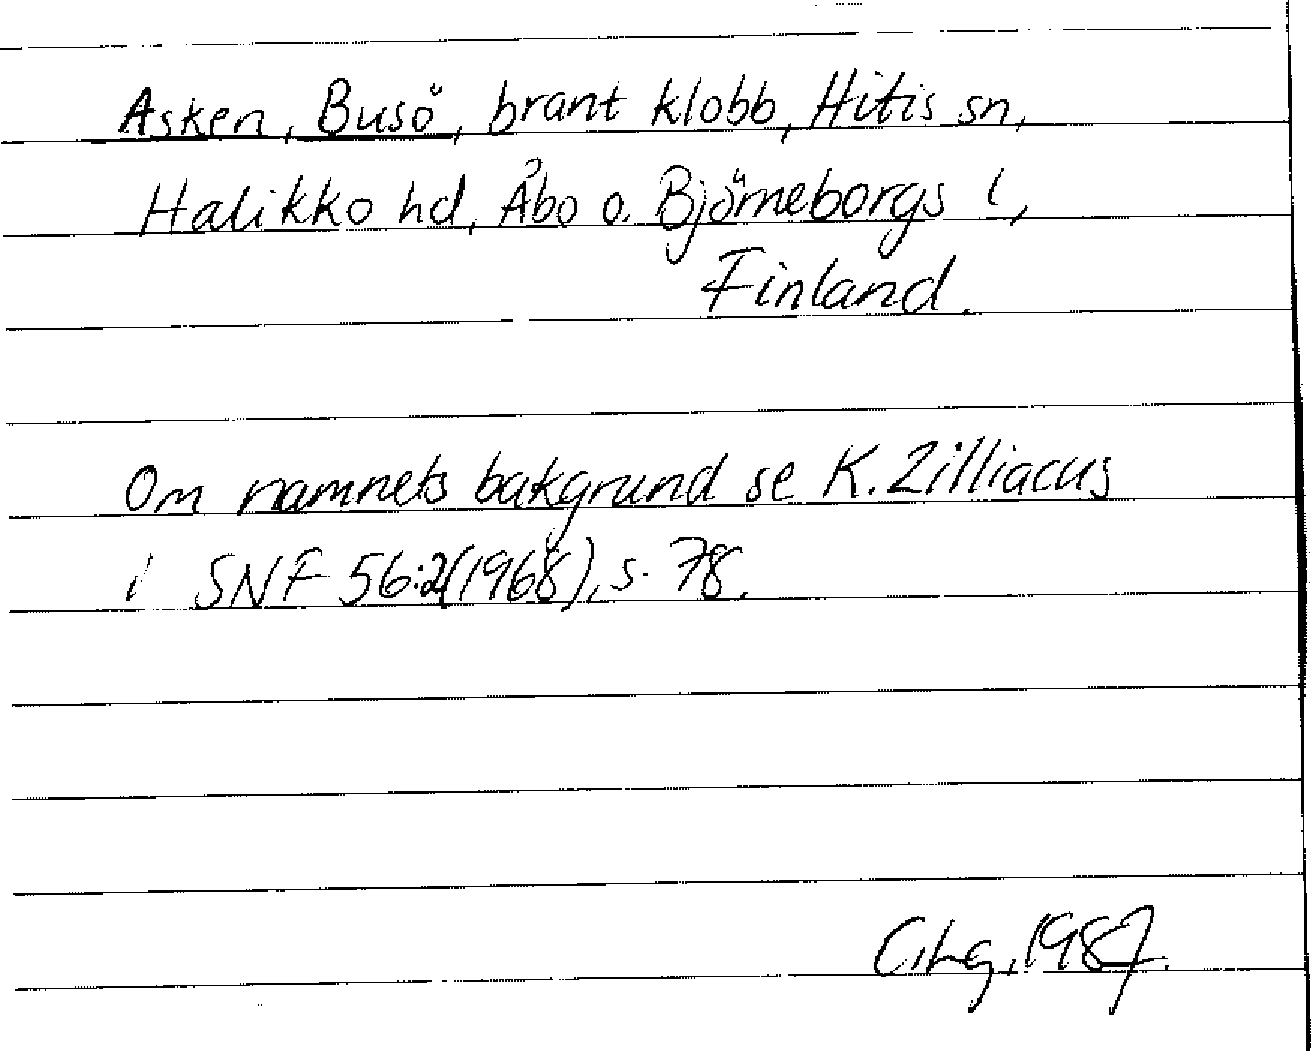 Asken, Busö, brant klobb, Hitis sn,
Halikko hd, Åbo o. Björneborgs l,
Finland.
Om namnets bakgrund se K. Zilliacus
i SNF 56:2(1968), s. 78.
C.Lg, 1987.